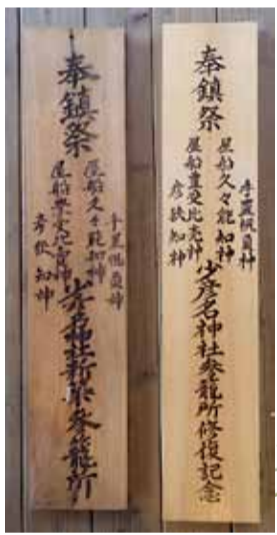 奉鎮祭
手置帆負神
屋船久々能知神
屋船豊受比売神
彦狭知神
少彦名神社参籠所修復記念
奉鎮祭
手置帆負神
屋船久々能知神
屋船豊受比売神
彦狭知神
少彦名神社新築参籠所